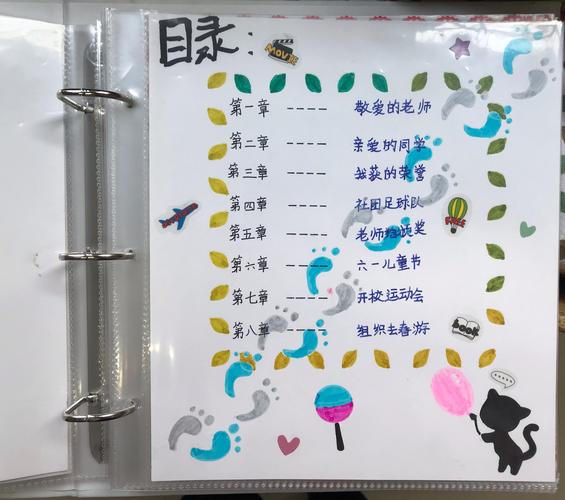 目录:
MOVIE
第一章 ---- 敬爱的老师
第二章 ---- 亲爱的同学
第三章 ---- 我获的荣誉
第四章 ---- 社团足球队
第五章 ---- 老师给颁奖
第六章 ---- 六一儿童节
第七章 ---- 开校运动会
第八章 ---- 组织去春游
FREE
book